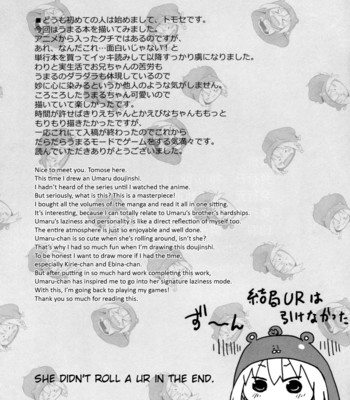 ■どうも初めての人は始めまして、トモセです。
今回はうまる本を描いてみました。
アニメから入ったクチではあるのですが、
あれ、なんだこれ…面白いじゃない!と
単行本を買ってイッキ読みして以降すっかり虜になりました。
わりと実生活でお兄ちゃんの苦労も
うまるのダラダラも体現しているので
妙に心に染みるというか他人のような気がしません。
ころころしたうまるちゃん可愛いので
描いていて楽しかったです。
時間が許せばきりえちゃんとかえびなちゃんももっと
もりもり描きたかったですが、
一応これにて入稿が終わったのでこれから
だらだらうまるモードでゲームをする気満々です。
読んでいただきありがとうございました。
Nice to meet you. Tomose here.
This time I drew an Umaru doujinshi.
I hadn't heard of the series until I watched the anime.
But seriously, what is this? This is a masterpiece!
I bought all the volumes of the manga and read it all in one sitting.
It's interesting, because I can totally relate to Umaru's brother's hardships.
Umaru's laziness and personality is like a direct reflection of myself too.
The entire atmosphere is just so enjoyable and well done.
Umaru-chan is so cute when she's rolling around, isn't she?
That's why I had so much fun when I'm drawing this doujinshi.
To be honest I want to draw more if I had the time,
especially Kirie-chan and Ebina-chan.
But after putting in so much hard work completing this work,
Umaru-chan has inspired me to go into her signature laziness mode.
With this, I'm going back to playing my games!
Thank you so much for reading this.
結局URは
引けなかった
ず〜ん
SHE DIDN'T ROLL A UR IN THE END.